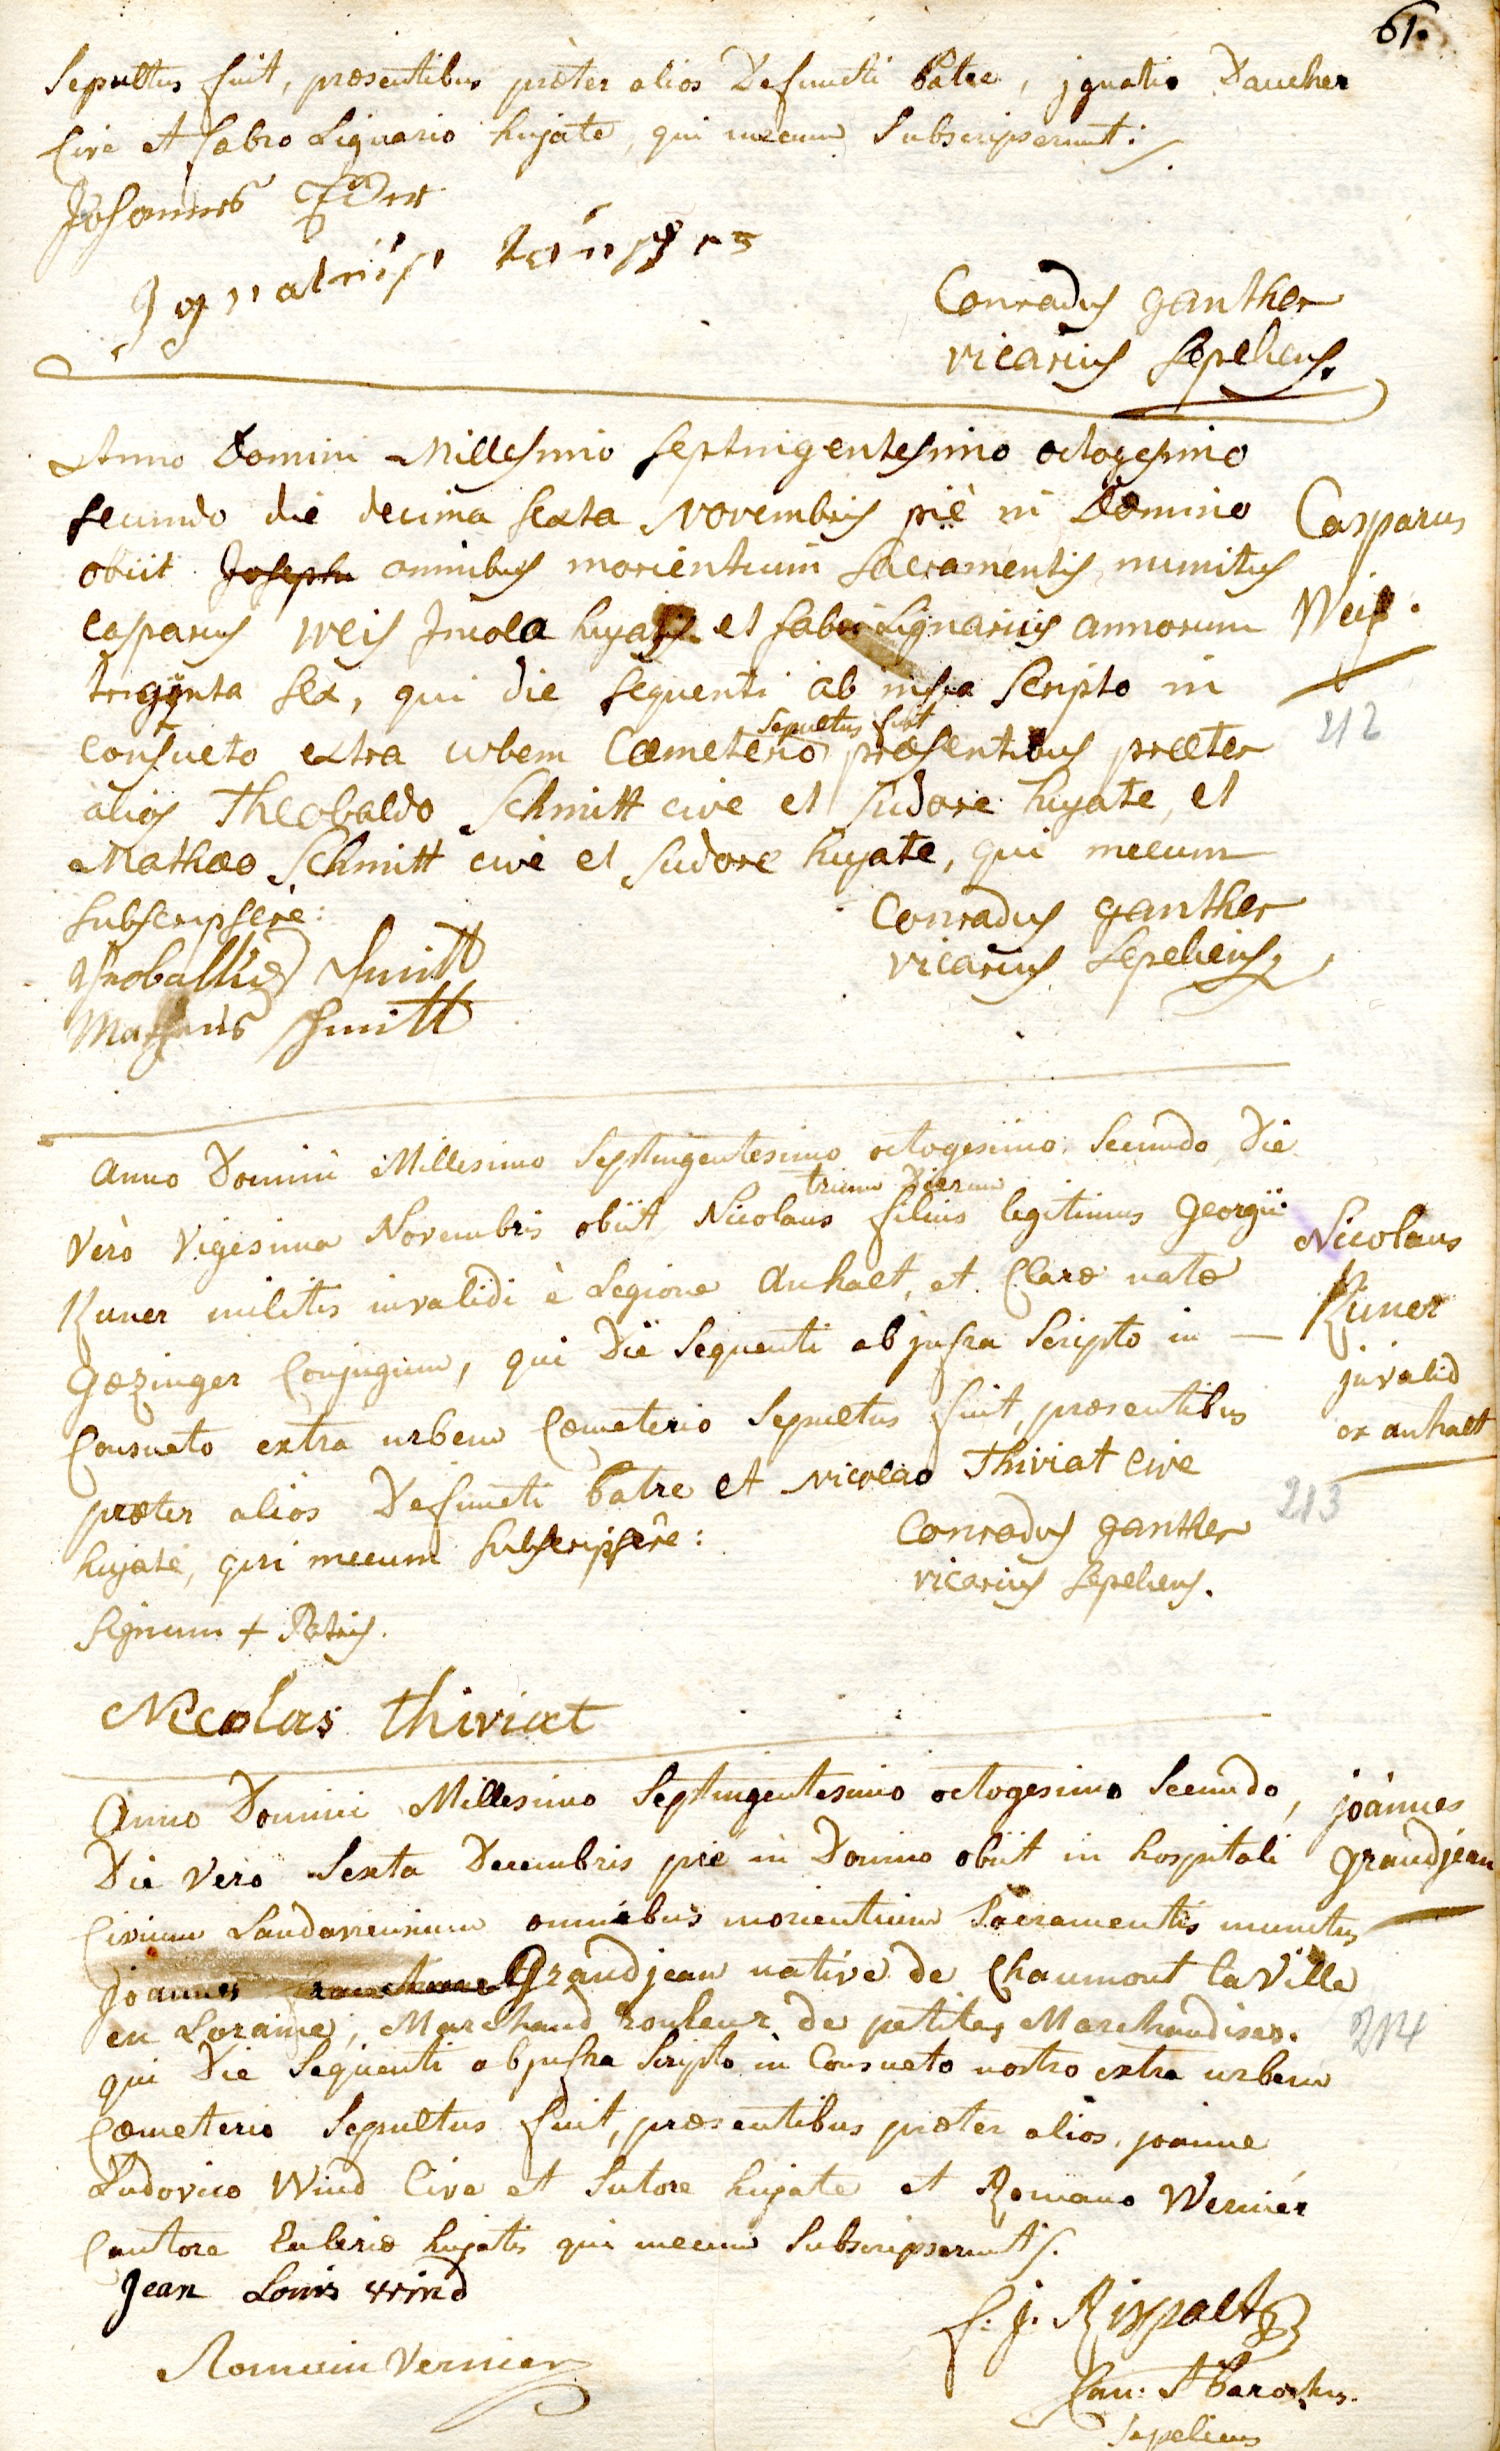 61.
Sepultus fuit, præsentibus præter alios Defuncti Patre, jgnatio Daucher
Cive et fabro Lignario hujate, qui mecum Subscripserunt:
Johannes
Ignatius
Conradus ganther
vicarius Sepeliens.
Anno Domini Millesimo septuigentesimo octogesimo
secundo die decima sexta Novembris piè in Domino
obiit Joseph omnibus morientium Sacramentis munitus
Casparus Weis Incola hujas et faber Lignarius annorum
trigynta sex, qui die sequenti ab infra scripto in
sepultus fuit
consueto extra urbem Cœmeterio præsentibus præter
alios Theobaldo Schmitt cive et sudore hujate, et
Mathæo Schmitt cive et sudore hujate, qui mecum
subscripsere:
Casparus
Weis.
212
Conradus ganther
vicarius Sepeliens,
Theobaldus Smitt
Matheis Schmitt
Anno Domini Millesimo Septingentesimo octogesimo Secundo, Die
trium Dierum
Verò Vigesima Novembris obiit Nicolaus filius legitimus Georgii
Kuner militis invalidi è Legione Anhalt, et Claræ natæ
Gœzinger Conjugum, qui Die Sequenti ab jnfra Scripto in —
Consueto extra urbem Cœmeterio Sepultus fuit, præsentibus
præter alios Defuncti Patre et Nicolao Thiriat Cive
hujate, qui mecum subscripsêre:
Nicolaus
Kuner
jnvalid
ex anhalt
213
Conradus ganther
vicarius Sepeliens.
Signum + Patris.
Nicolas thiriat
Anno Domini Millesimo Septingentesimo octogesimo Secundo,
Die Vero Sexta Decembris piè in Domino obiit in hospitali
Civium Landaviensium omnibus morientium Sacramentis munitus
Joannes Grandjean native de Chaumont la Ville
en Loraine, Marchand rouleur de petites Marchandises.
qui Die Sequenti ab jnfra Scripto in Consueto nostro extra urbem
Cœmeterio Sepultus fuit, præsentibus præter alios, joanne
Ludovico Wind Cive et Sutore hujate et Romano Wernier
Cantore Eclesiæ hujatis qui mecum Subscripserunt/.
joannes
Grandjean
214
Jean Louis wind
Romain Vernier
f: j: Rispalt
Can: et Parochus.
sepeliens